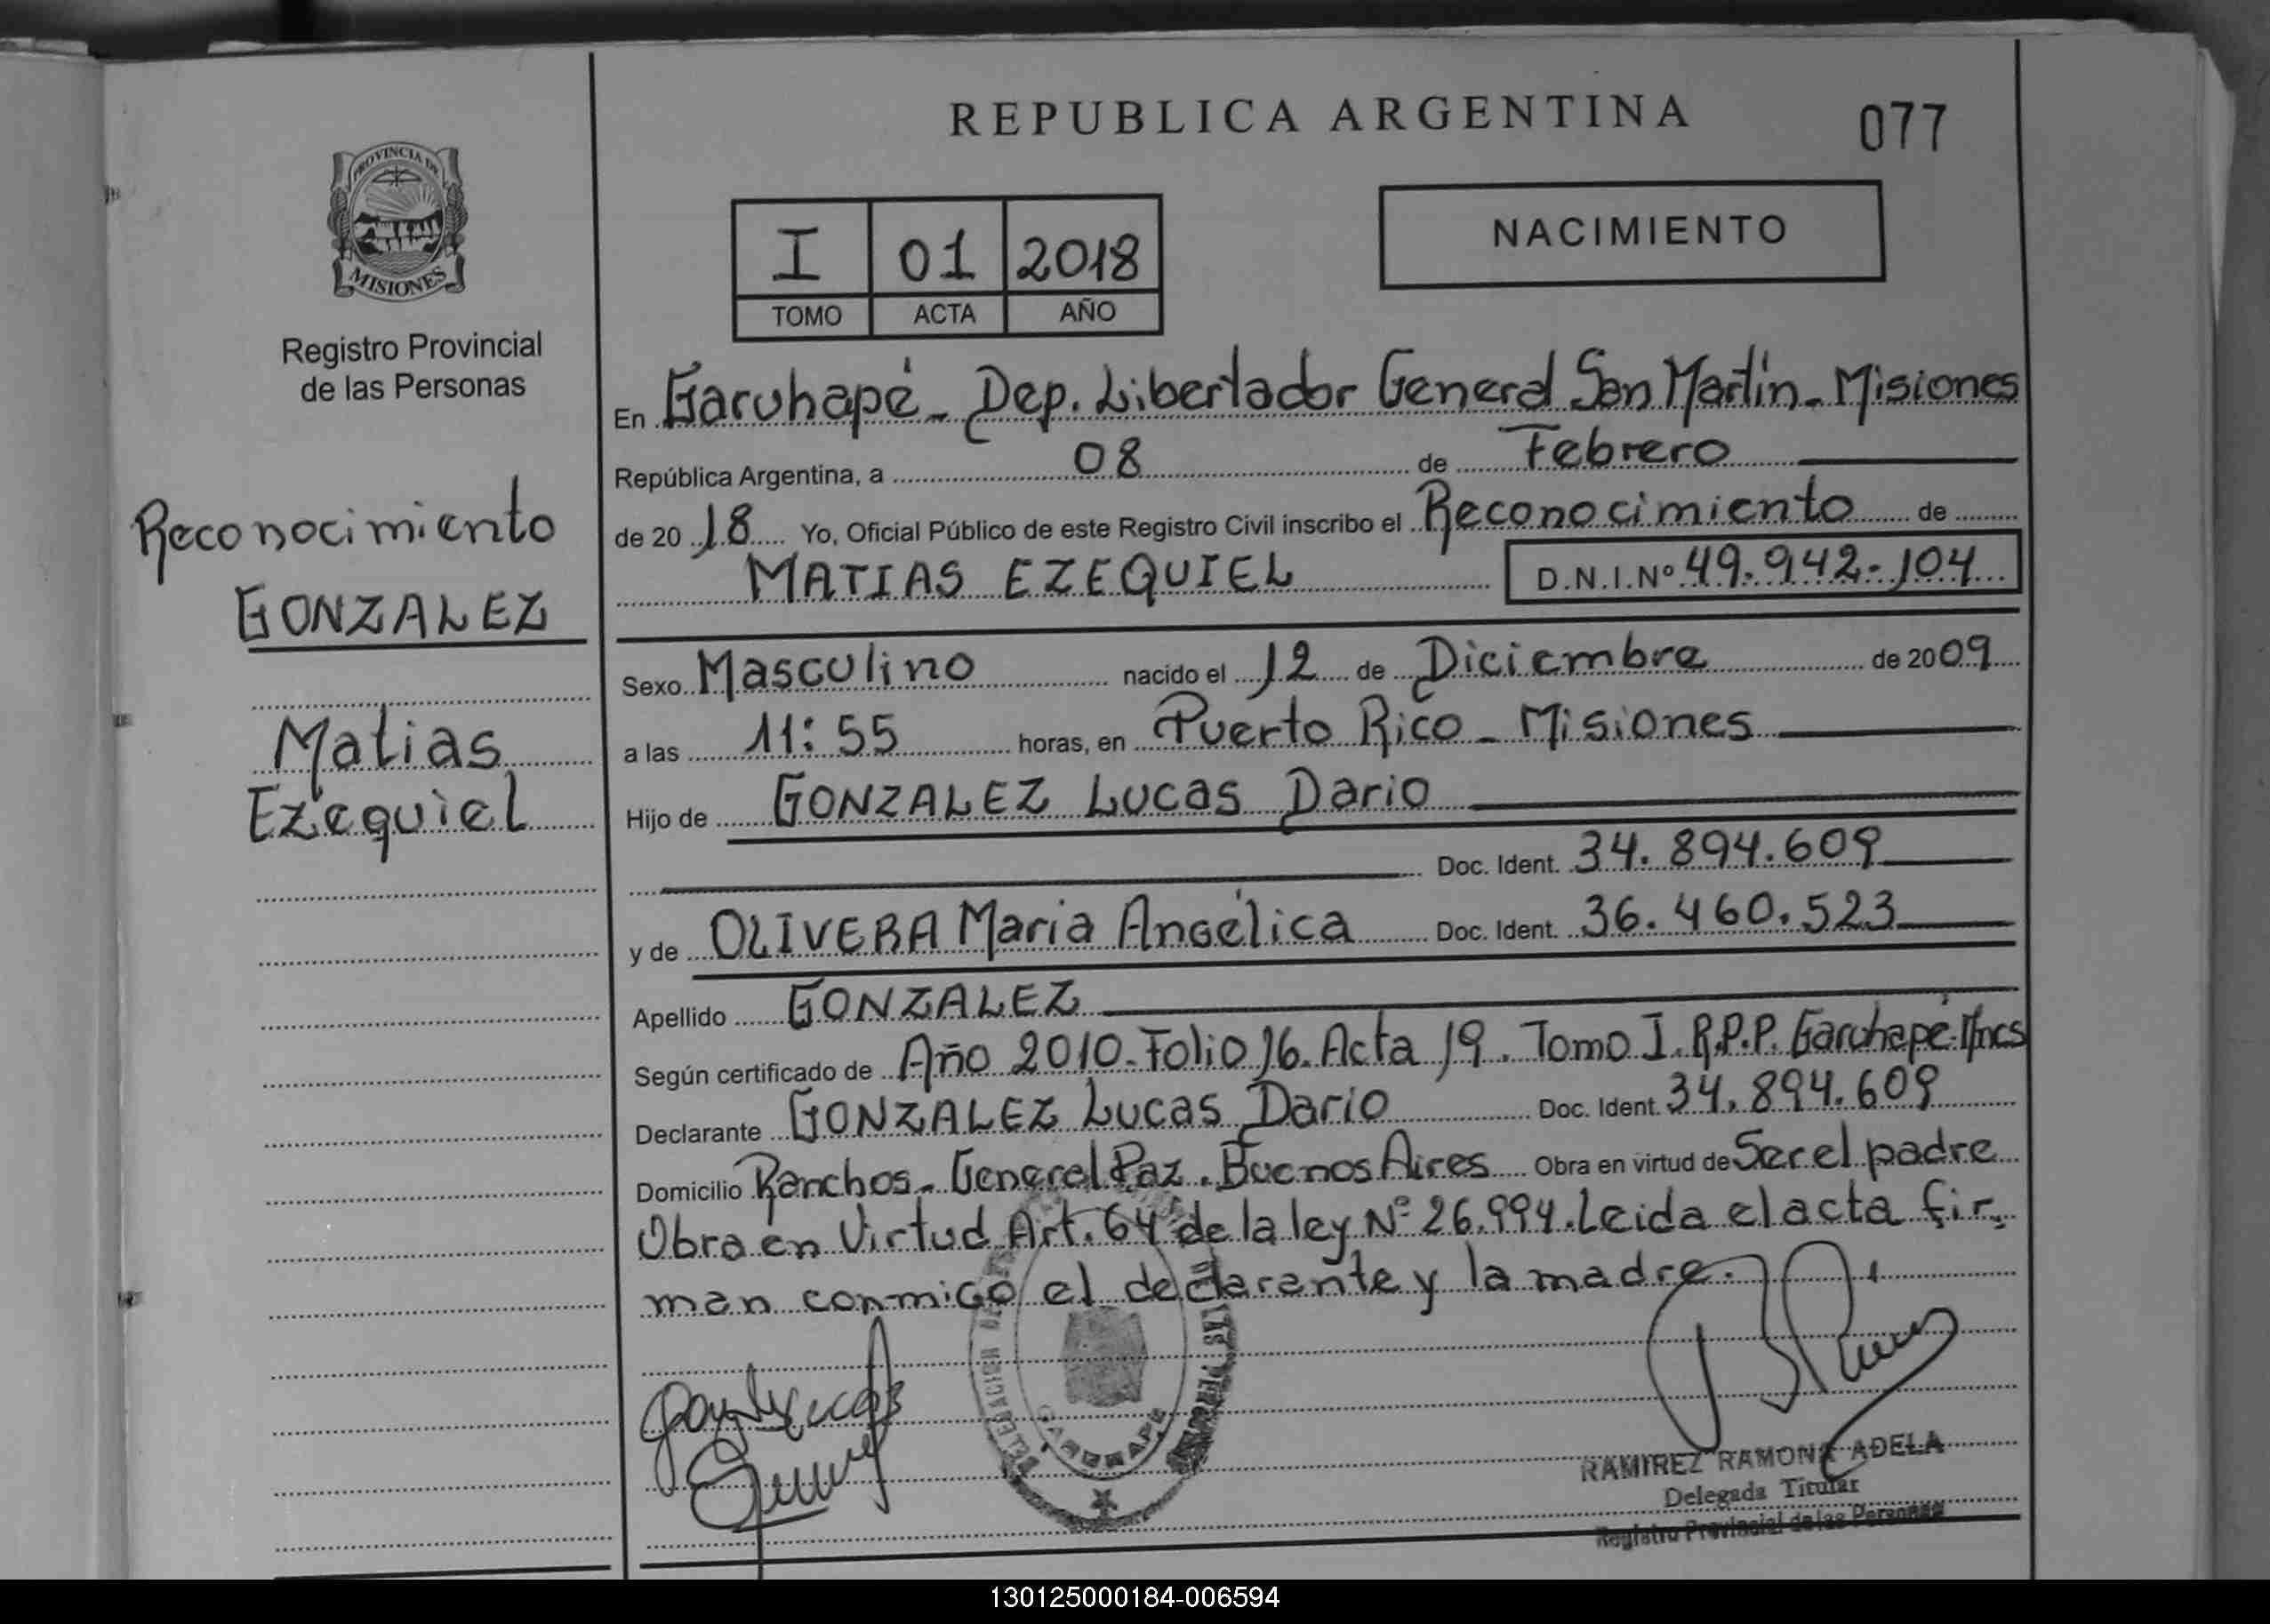 REPUBLICA ARGENTINA
077
PROVINCIA DE
MISIONES
Registro Provincial
de las Personas
I 01 2018
TOMO ACTA AÑO
NACIMIENTO
Reconocimiento
GONZALEZ
Matias
Ezequiel
En Garuhapé - Dep. Libertador General San Martín - Misiones
República Argentina, a 08 de Febrero
de 20 18 Yo, Oficial Público de este Registro Civil inscribo el Reconocimiento de
MATIAS EZEQUIEL D.N.I.Nº 49.942.104
Sexo Masculino nacido el 12 de Diciembre de 2009
a las 11:55 horas, en Puerto Rico - Misiones
Hijo de GONZALEZ Lucas Dario
Doc. Ident. 34.894.609
y de OLIVERA Maria Angélica Doc. Ident. 36.460.523
Apellido GONZALEZ
Según certificado de Año 2010. Folio 16. Acta 19. Tomo I. R.P.P. Garuhapé. Mnes
Declarante GONZALEZ Lucas Dario Doc. Ident. 34.894.609
Domicilio Ranchos - General Paz. Buenos Aires Obra en virtud de Ser el padre
Obra en Virtud Art. 64 de la ley Nº 26.994. Leida el acta fir-
man conmigo el declarante y la madre.
DELEGACION DE LAS PERSONAS
GARUHAPE
RAMIREZ RAMONA ADELA
Delegada Titular
Registro Provincial de las Personas
130125000184-006594